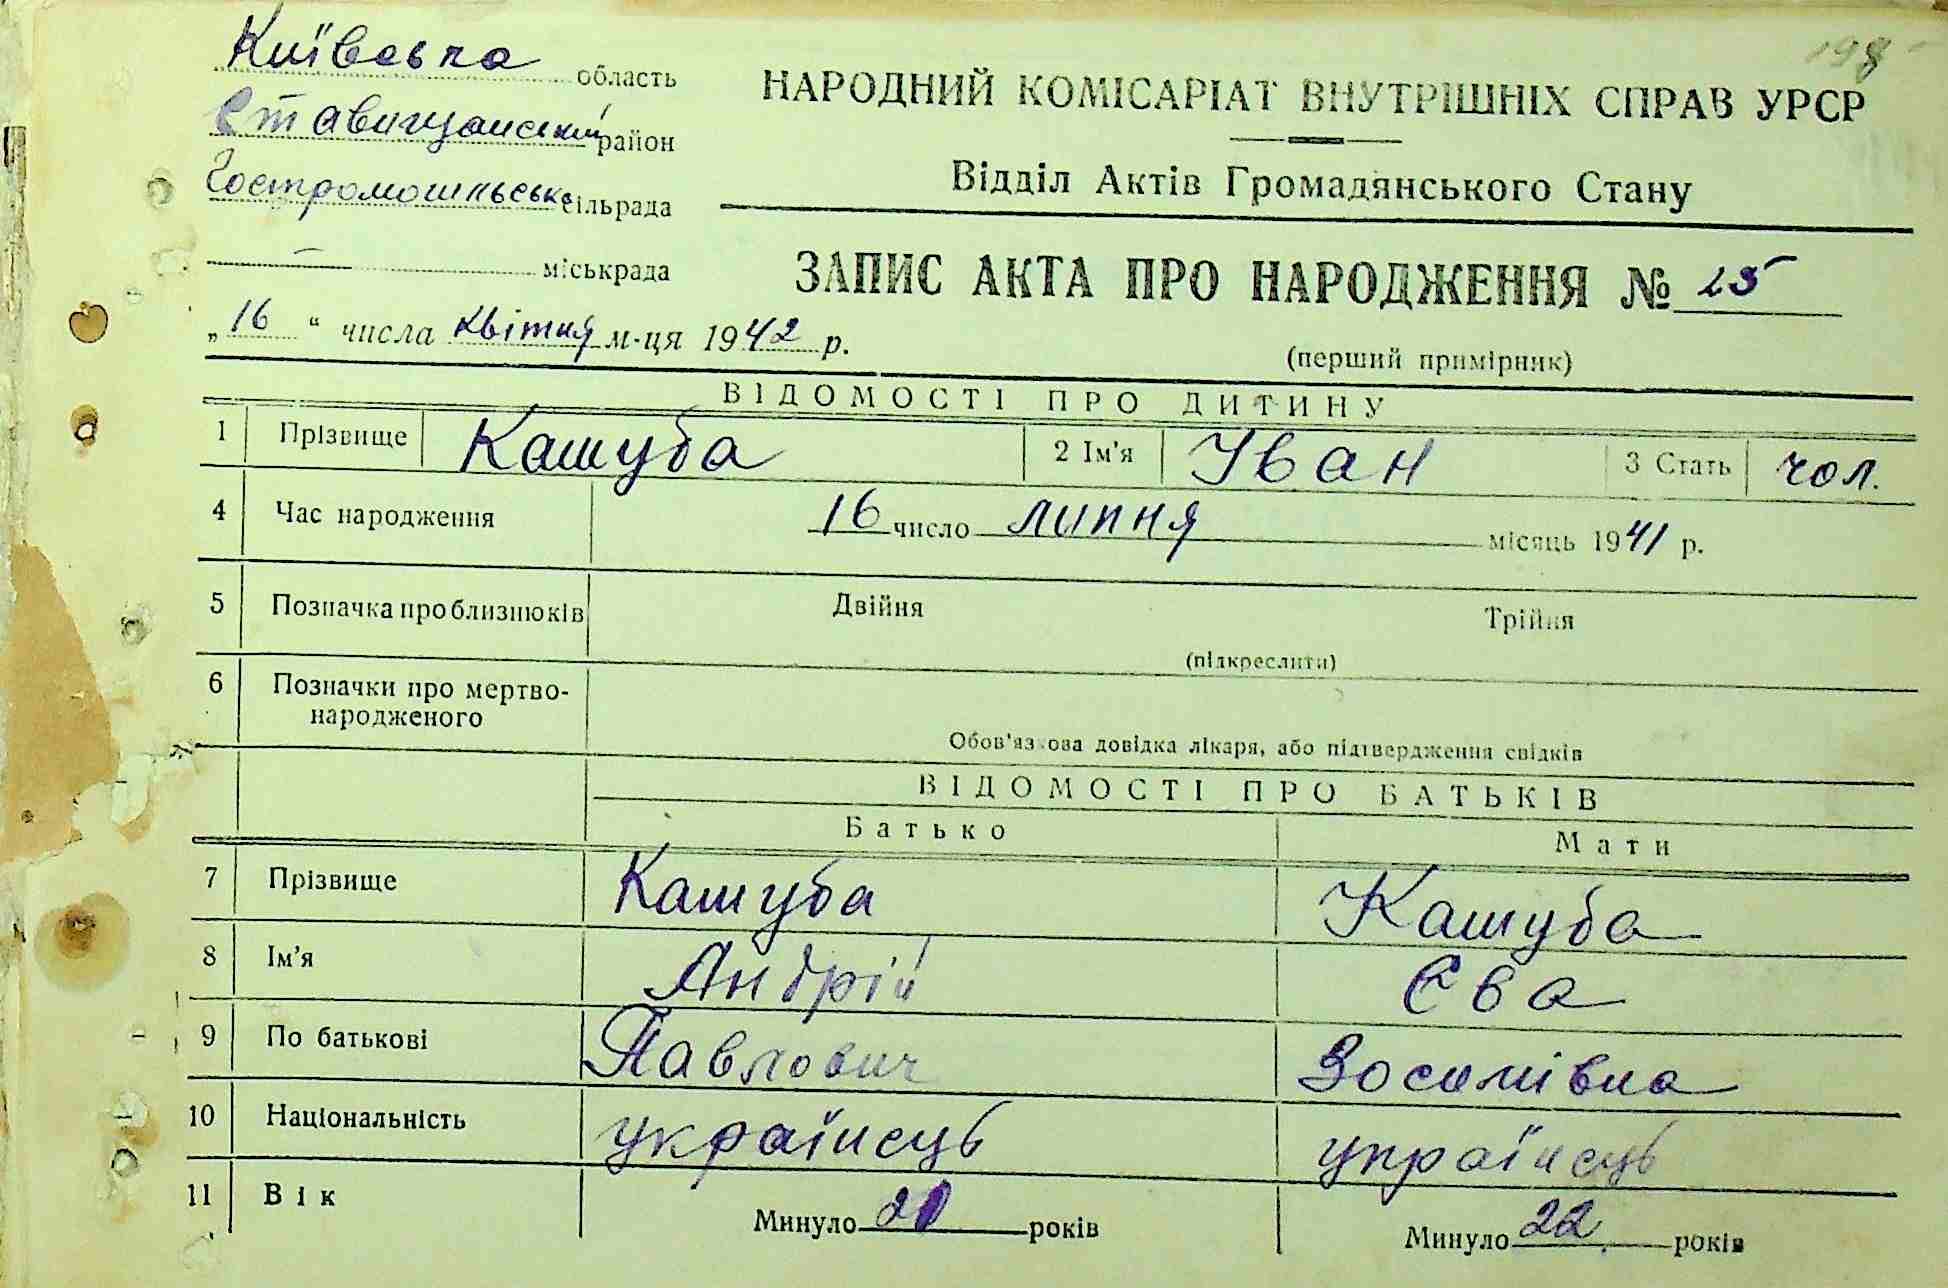 Київська область
Ставищанський район
Гостромогильська сільрада
— міськрада
НАРОДНИЙ КОМІСАРІАТ ВНУТРІШНІХ СПРАВ УРСР
Відділ Актів Громадянського Стану
ЗАПИС АКТА ПРО НАРОДЖЕННЯ № 25
„16“ числа квітня м-ця 1942 р.
(перший примірник)
ВІДОМОСТІ ПРО ДИТИНУ
1 Прізвище Кашуба 2 Ім'я Іван 3 Стать чол.
4 Час народження 16 число липня місяць 1941 р.
5 Позначка про близнюків Двійня Трійня
(підкреслити)
6 Позначки про мертво-
народженого
Обов'язкова довідка лікаря, або підтвердження свідків
ВІДОМОСТІ ПРО БАТЬКІВ
Батько Мати
7 Прізвище Кашуба Кашуба
8 Ім'я Андрій Єва
9 По батькові Павлович Зосимівна
10 Національність українець українець
11 Вік Минуло років Минуло 22 років